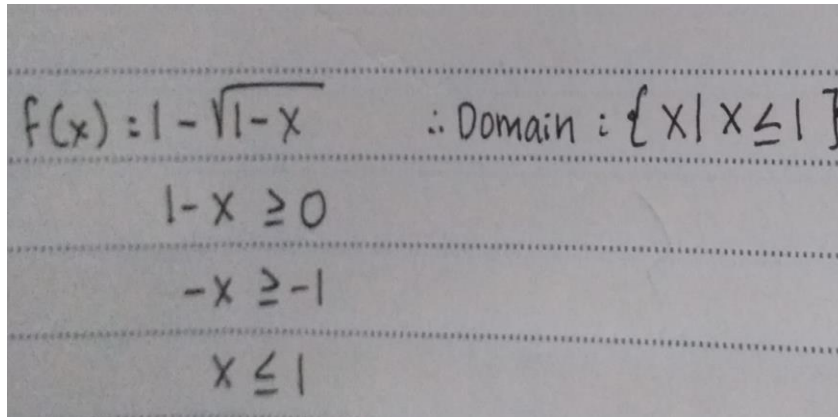 f(x) : 1 - √(1-x) ∴ Domain : {x | x ≤ 1}
1 - x ≥ 0
-x ≥ -1
x ≤ 1